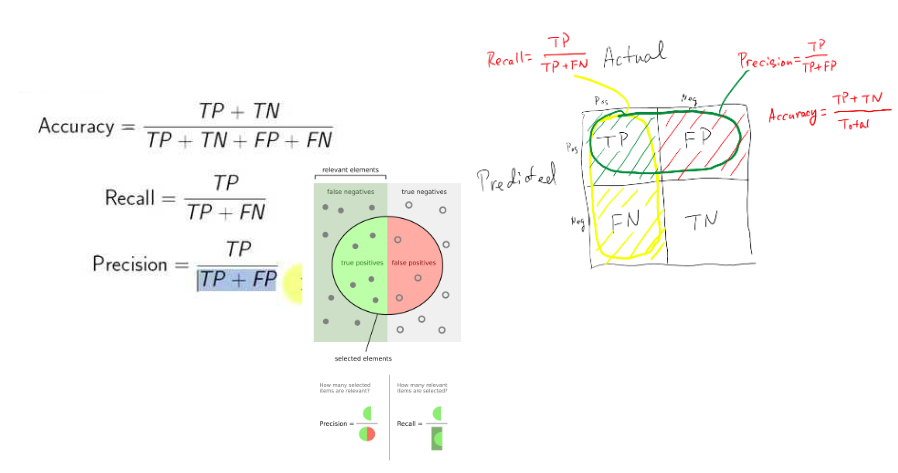 Accuracy = TP + TN / TP + TN + FP + FN
Recall = TP / TP + FN
Precision = TP / TP + FP
relevant elements
false negatives true negatives
true positives false positives
selected elements
How many selected
items are relevant?
How many relevant
items are selected?
Precision =
Recall =
Recall= TP / TP+FN
Actual
Precision= TP / TP+FP
Accuracy = TP+TN / Total
Pos Neg
Predicted
Pos TP FP
Neg FN TN